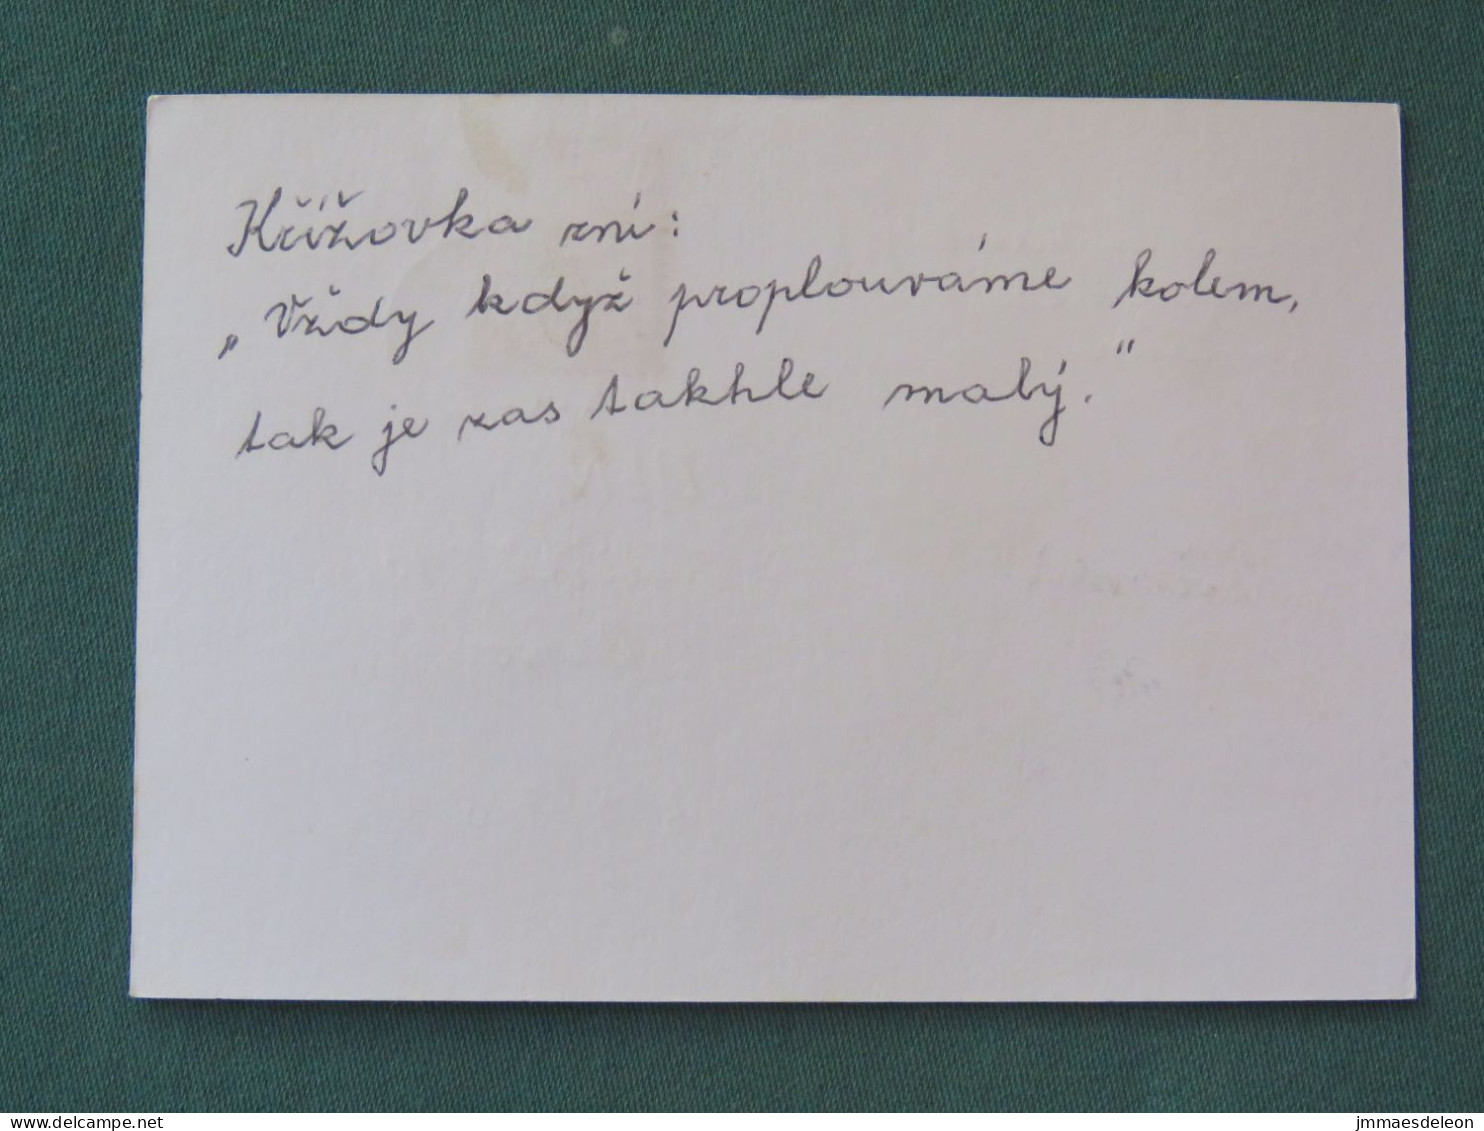 Křížovka zní:
„Vždy když proplouváme kolem,
tak je zas takhle malý."
jmmaesdeleon